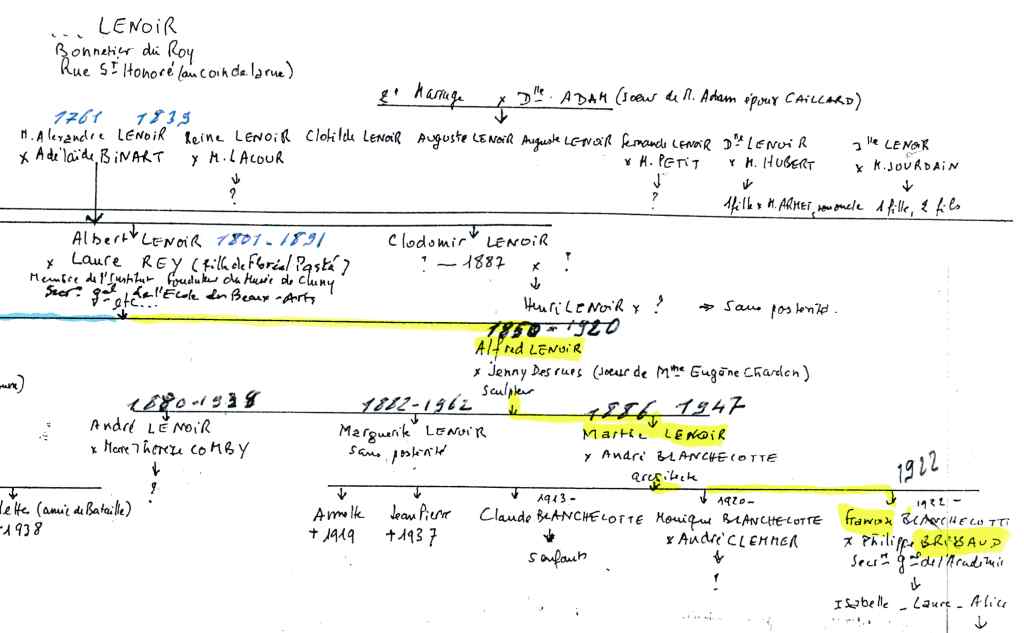 ... LENOIR
Bonnetier du Roy
Rue St Honoré (au coin de la rue)
2e Mariage x Dlle ADAM (soeur de M. Adam époux CAILLARD)
1761 1839
M. Alexandre LENOIR Reine LENOIR Clotilde LENOIR Auguste LENOIR Auguste LENOIR Fernande LENOIR Dlle LENOIR Dlle LENOIR
x Adélaïde BINART x M. LACOUR x M. PETIT x M. HUBERT x M. JOURDAIN
? ? 1 fille x M. ARMET, son oncle 1 fille, 2 fils
Albert LENOIR 1801-1891 Clodomir LENOIR
x Laure REY (fille de Floréal Pasté) ? — 1887 x ?
Membre de l'Institut fondateur du Musée de Cluny
Secr. gal de l'Ecole des Beaux-Arts
etc...
Henri LENOIR x ? ⇒ Sans postérité.
1850-1920
Alfred LENOIR
x Jenny Desrues (soeur de Mme Eugène Chardon)
Sculpteur
1880-1938 1882-1962 1886 1947
André LENOIR Marguerite LENOIR Marthe LENOIR
x Marie Thérèse COMBY Sans postérité x André BLANCHECOTTE
? architecte
1922
1913- 1920- 1922-
lette (amie de Bataille) Annette Jean Pierre Claude BLANCHECOTTE Monique BLANCHECOTTE BLANCHECOTTE
+1938 +1919 +1937 x André CLEMMER x Philippe BRISSAUD
5 enfants Secr. gal de l'Académie
?
Isabelle - Laure - Alice